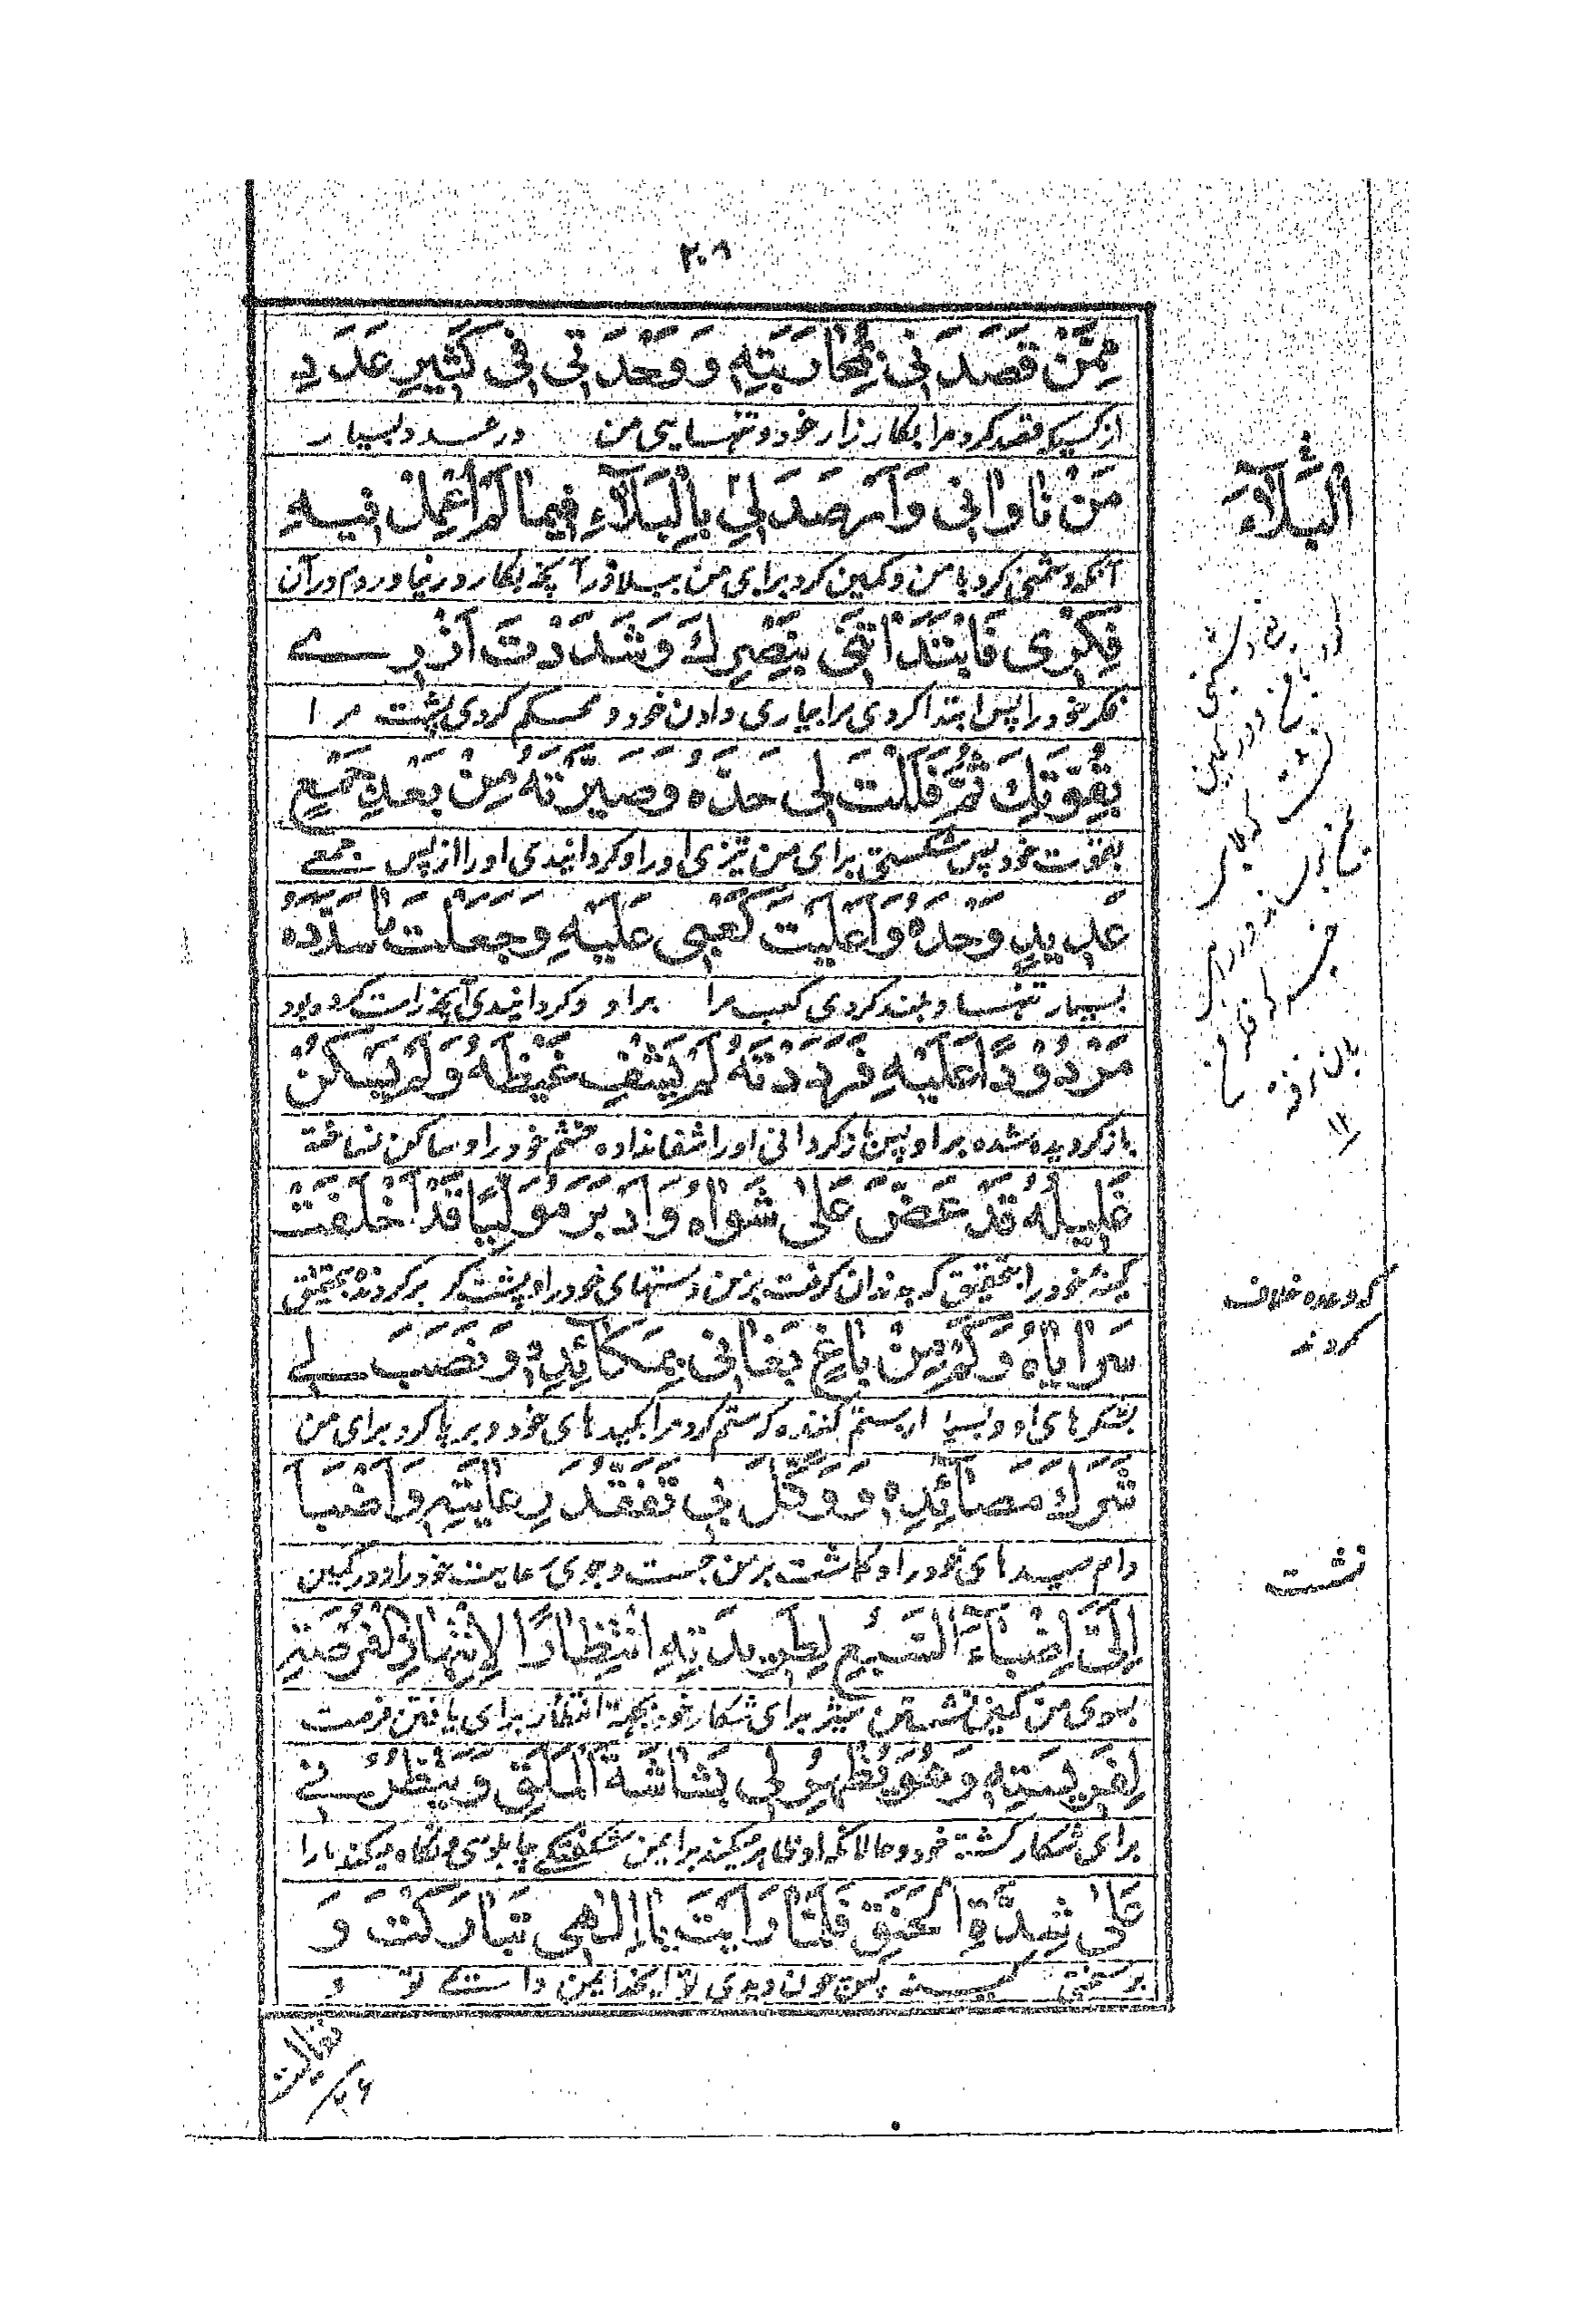 ۲۰۸
مِمَّنْ قَصَدَنِی بِمُحَارَبَتِهٖ وَوَحْدَتِی فِی كَثِیرِ عَدَدِ
از کسیکه قصد کرد مرا بکارزار خود و تنهایی من در عدد بسیار
مَنْ نَاوَانِی وَاَرْصَدَ لِیْ بِالْبَلَآءِ فِیمَا لَمْ اُعْمِلْ فِیهِ
آنکه دشمنی کرد با من و کمین کرد برای من ببلا در آنچه بکار در نیاوردم در آن
فِكْرِی فَابْتَدَاْتَنِی بِنَصْرِكَ وَشَدَدْتَ اَزْرِے
فکر خود را پس ابتدا کردی مرا بیاری دادن خود و محکم کردی پشت مرا
بِقُوَّتِكَ ثُمَّ فَلَلْتَ لِی حَدَّهُ وَصَیَّرْتَهُ مِنْ بَعْدِ جَمْعٍ
بقوت خود پس شکستی برای من تیزی او را و گردانیدی او را از پس جمعے
عَدِیدٍ وَحْدَهُ وَاَعْلَیْتَ كَعْبِی عَلَیْهِ وَجَعَلْتَ مَا سَدَّدَهُ
بسیار تنها و بلند کردی کعب مرا بر او و گردانیدی آنچه راست کرده بود
مَرْدُوْدًا عَلَیْهِ فَرَدَدْتَهُ لَمْ یَشْفِ غَیْظَهُ وَلَمْ یَسْكُنْ
باز گردیده شده بر او پس باز گردانی او را شفا نداده خشم خود را و ساکن نساخته
غَلِیلُهُ قَدْ عَضَّ عَلٰی شَوَاهُ وَاَدْبَرَ مُوَلِّیًا قَدْ اَخْلَفَتْ
کینهٔ خود را بتحقیق که بدندان گرفت بر من دستهای خود را و پشت کرد برگردنده بتحقیق
سَرَایَاهُ وَكَمْ مِنْ بَاغٍ بَغَانِی بِمَكَائِدِهٖ وَنَصَبَ لِے
لشکرهای او و بسیار ستم کننده که ستم کرد مرا بکیدهای خود و بر پا کرد برای من
شَرَكَ مَصَآئِدِهٖ وَوَكَّلَ بِی تَفَقُّدَ رِعَایَتِهٖ وَاَضْبَاَ
دام صیدهای خود را و گماشت بر من جست و جوی رعایت خود را و در کمین
اِلَیَّ اِضْبَآءَ السَّبُعِ لِطَرِیدَتِهِ انْتِظَارًا لِانْتِهَازِ الْفُرْصَةِ
بسوی من کمین نشستن شیر برای شکار خود بجهة انتظار برای یافتن فرصت
لِفَرِیسَتِهٖ وَهُوَ یُظْهِرُ لِی بَشَاشَةَ الْمَلَقِ وَیَنْظُرُنِے
برای شکار کشته خود و حالانکه او ظاهر میکند برای من شکفتگی چاپلوسی و نگاه میکند ما را
عَلٰی شِدَّةِ الْحَنَقِ فَلَمَّا رَاَیْتَ یَا اِلٰهِی تَبَارَكْتَ وَ
بر سختی کینه پس چون دیدی تو ایخدای من و
تعالیت
الْبَلَآءَ
که وعده خلاف
کردند
نشست